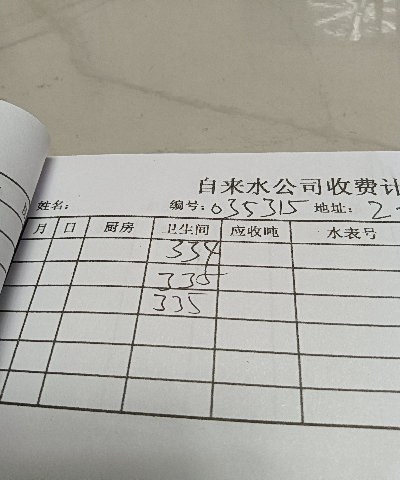 自来水公司收费计
姓名: 编号: 035315 地址: 2
月 日 厨房 卫生间 应收吨 水表号
334
335
335